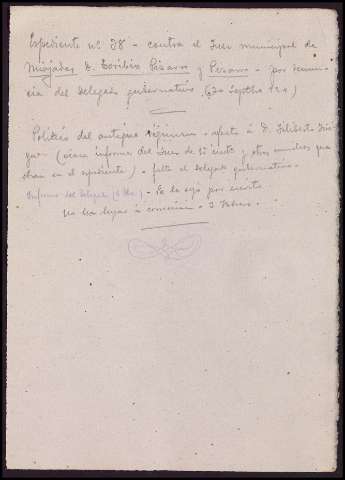 Expediente nº 38 - contra el Juez municipal de
Miajadas D. Toribio Pizarro y Pizarro - por denun-
cia del delegado gubernativo (30 Septbre
Político del antiguo régimen - afecto á D. Filiberto
(véase informe del Juez de y otros muchos que
obran en el expediente) - falta el delegado gubernativo.
Informe del Delegado - Se le oyó por escrito
No ha lugar á corrección - 3 Febrero.